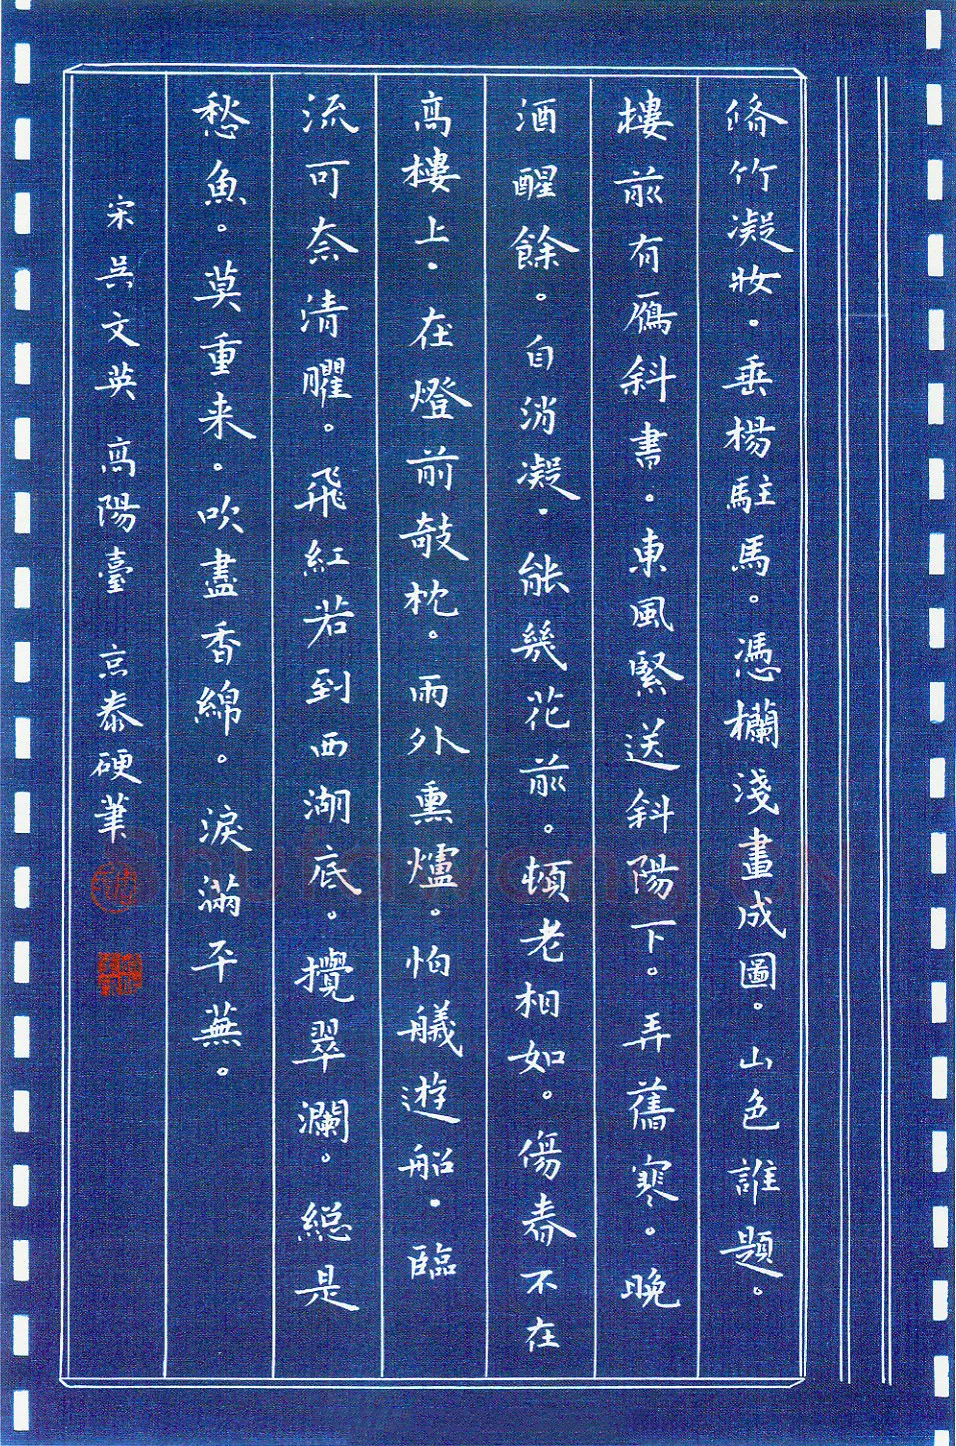 脩竹凝妝・垂楊駐馬。憑欄淺畫成圖。山色誰題。
樓前有鴈斜書。東風緊送斜陽下。弄舊寒。晚
酒醒餘。自消凝・能幾花前。頓老相如。傷春不在
高樓上・在燈前敧枕。雨外熏爐。怕艤遊船・臨
流可奈清臞。飛紅若到西湖底。攪翠瀾。總是
愁魚。莫重来。吹盡香綿。淚滿平蕪。
宋 吳文英 高陽臺 京泰硬筆